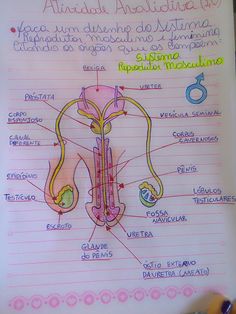 Atividade Avaliativa
faça um desenho do sistema
Reprodutor masculino e feminino
citando os órgãos que os compoim:
sistema
Reprodutor Masculino
BEXIGA
URETER
PRÓSTATA
VESÍCULA SEMINAL
CORPO
ESPONJOSO
CORPOS
CAVERNOSOS
CANAL
DEFERENTE
PÊNIS
EPIDÍDIMO
TESTÍCULO
LÓBULOS
TESTICULARES
ESCROTO
FOSSA
NAVICULAR
URETRA
GLANDE
do PÊNIS
ÓSTIO EXTERNO
DA URETRA (MEATO)